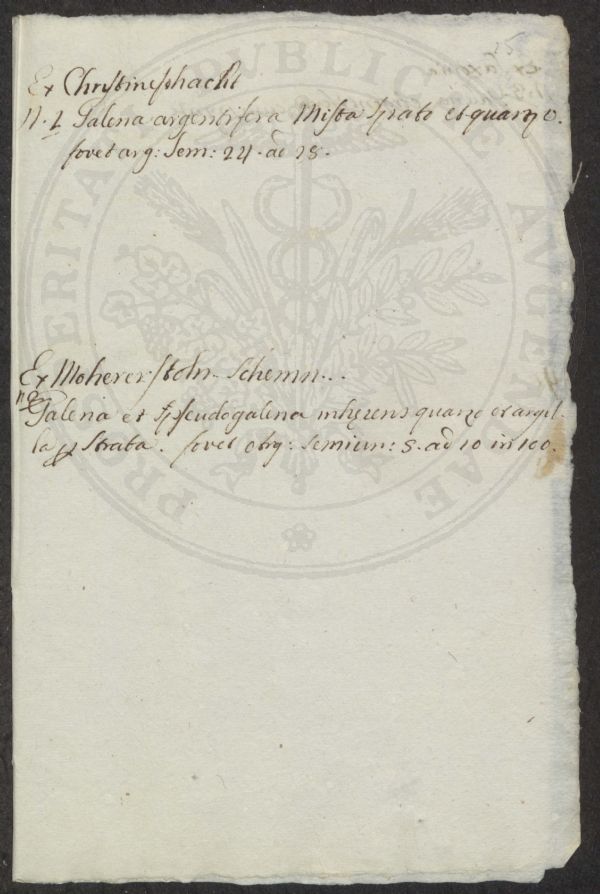 Ex Christineschacht
N. 1 Galena argentifera Mista spato et quarzo.
fovet arg: Sem: 24. ad 28.
Ex Moherer stoln Schemn..
n 2
Galena et pseudogalena inhęrens quarz et argil-
la strata. fovet arg: Semiun: 8. ad 10 in 100.
PRO VERITATE PUBLICAE AUGENDAE